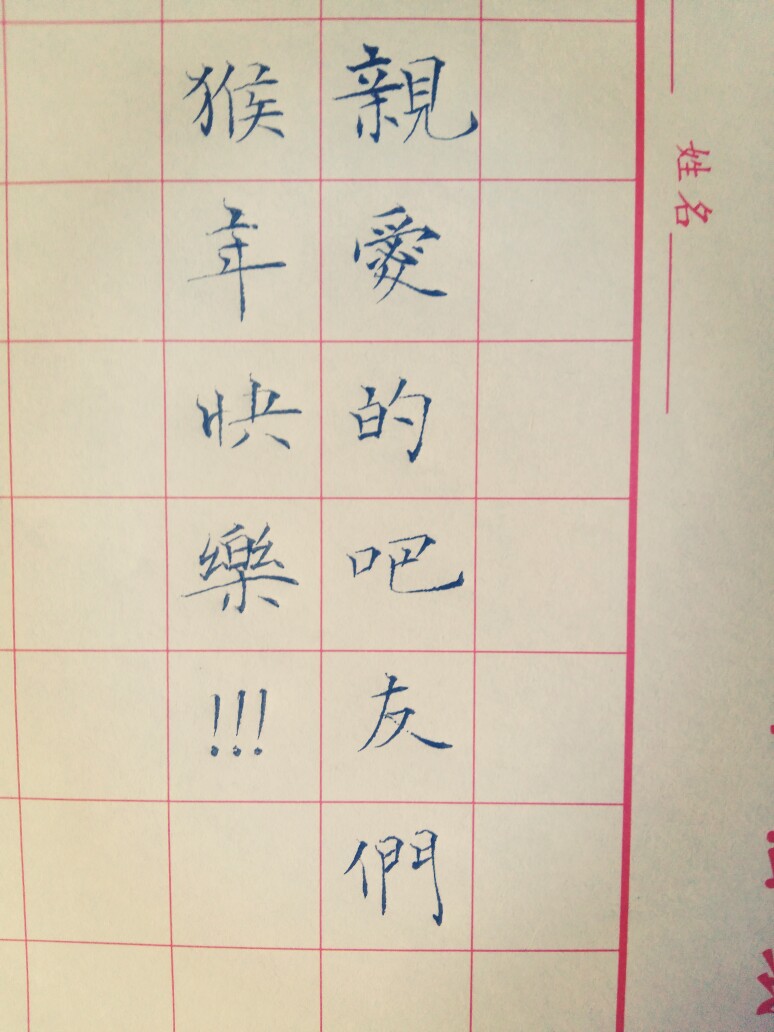 姓名
親愛的吧友們
猴年快樂!!!